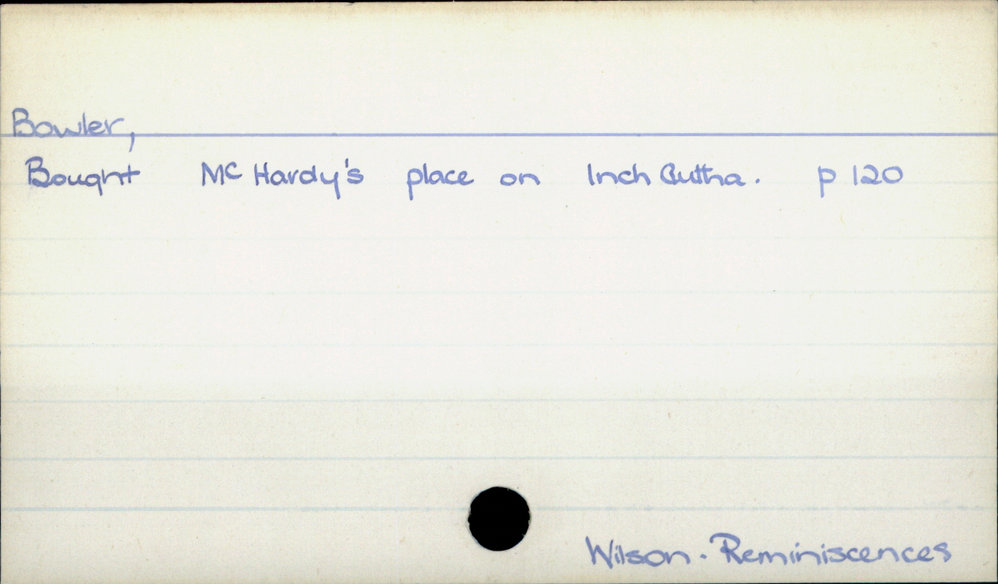 Bowler,
Bought Mc Hardy's place on Inch Cuttha. p 120
Wilson. Reminiscences